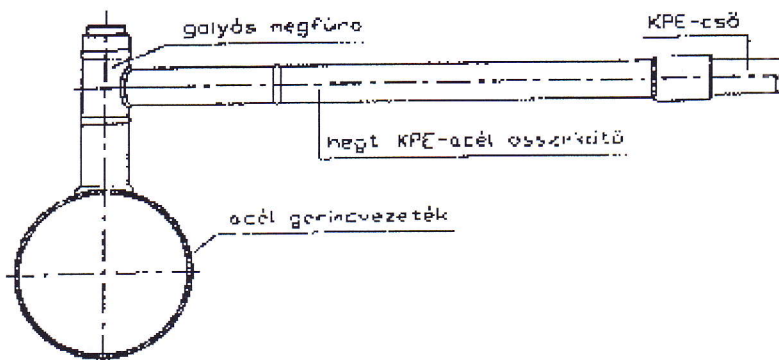 golyós megfúró
KPE-cső
hegt KPE-acél összekötő
acél gerincvezeték